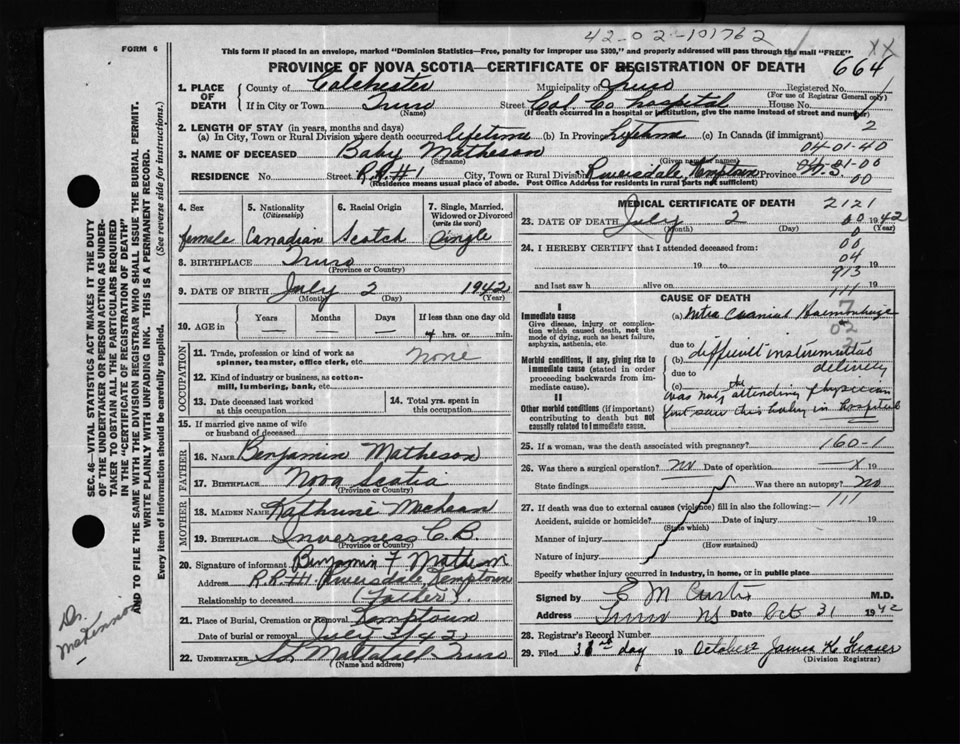 42-02-101762
FORM 6
This form if placed in an envelope, marked "Dominion Statistics—Free, penalty for improper use $300," and properly addressed will pass through the mail "FREE"
XX
PROVINCE OF NOVA SCOTIA—CERTIFICATE OF REGISTRATION OF DEATH
664
1. PLACE OF DEATH County of Colchester Municipality of Truro Registered No.
(For use of Registrar General only)
If in City or Town Truro Street Col. Co. hospital House No.
(Name) (If death occurred in a hospital or institution, give the name instead of street and number)
2
2. LENGTH OF STAY (in years, months and days)
(a) In City, Town or Rural Division where death occurred lifetime (b) In Province lifetime (c) In Canada (if immigrant)
04-01-40
3. NAME OF DECEASED Baby Matheson
(Surname) (Given name or names)
RESIDENCE No. Street R.R.#1 City, Town or Rural Division Riversdale, Kemptown Province N.S.
(Residence means usual place of abode. Post Office Address for residents in rural parts not sufficient)
00
4. Sex 5. Nationality (Citizenship) 6. Racial Origin 7. Single, Married, Widowed or Divorced (write the word)
female Canadian Scotch Single
8. BIRTHPLACE Truro
(Province or Country)
9. DATE OF BIRTH July 2 1942
(Month) (Day) (Year)
10. AGE in Years Months Days If less than one day old
4 hrs. or min.
OCCUPATION
11. Trade, profession or kind of work as spinner, teamster, office clerk, etc. None
12. Kind of industry or business, as cotton-mill, lumbering, bank, etc.
13. Date deceased last worked at this occupation 14. Total yrs. spent in this occupation
15. If married give name of wife or husband of deceased
FATHER
16. NAME Benjamin Matheson
17. BIRTHPLACE Nova Scotia
(Province or Country)
MOTHER
18. MAIDEN NAME Kathrine
19. BIRTHPLACE Inverness C.B.
(Province or Country)
20. Signature of informant Benjamin F Matheson
Address R.R.#1 Riversdale, Kemptown
Relationship to deceased (Father).
21. Place of Burial, Cremation or Removal Kemptown
Date of burial or removal July 3/42
22. UNDERTAKER Truro
(Name and address)
MEDICAL CERTIFICATE OF DEATH 2121
23. DATE OF DEATH July 2 1942
(Month) (Day) (Year)
00
0
24. I HEREBY CERTIFY that I attended deceased from:
00
19 to 04 19
913
and last saw h alive on 19
111
CAUSE OF DEATH
I
Immediate cause
Give disease, injury or complication which caused death, not the mode of dying, such as heart failure, asphyxia, asthenia, etc.
(a) Intra Cranial Haemorrhage
due to
Morbid conditions, if any, giving rise to immediate cause (stated in order proceeding backwards from immediate cause).
(b) difficult instrumental delivery
due to
(c)
II
Other morbid conditions (if important) contributing to death but not causally related to immediate cause.
was not the attending physician
but saw this baby in hospital
25. If a woman, was the death associated with pregnancy? 160-1
26. Was there a surgical operation? no Date of operation x 19
State findings Was there an autopsy? No
27. If death was due to external causes (violence) fill in also the following:— 111
Accident, suicide or homicide? Date of injury 19
(State which)
Manner of injury
(How sustained)
Nature of injury
Specify whether injury occurred in industry, in home, or in public place
Signed by E M Curtis M.D.
Address Truro NS Date Oct 31 1942
28. Registrar's Record Number
29. Filed 31st day 19 October James H Fraser
(Division Registrar)
SEC. 46—VITAL STATISTICS ACT MAKES IT THE DUTY
OF THE UNDERTAKER OR PERSON ACTING AS UNDER-
TAKER TO OBTAIN ALL THE PARTICULARS REQUIRED
IN THE "CERTIFICATE OF REGISTRATION OF DEATH"
AND TO FILE THE SAME WITH THE DIVISION REGISTRAR WHO SHALL ISSUE THE BURIAL PERMIT.
WRITE PLAINLY WITH UNFADING INK. THIS IS A PERMANENT RECORD.
Every item of Information should be carefully supplied. (See reverse side for instructions.)
Dr.
MacKinnon